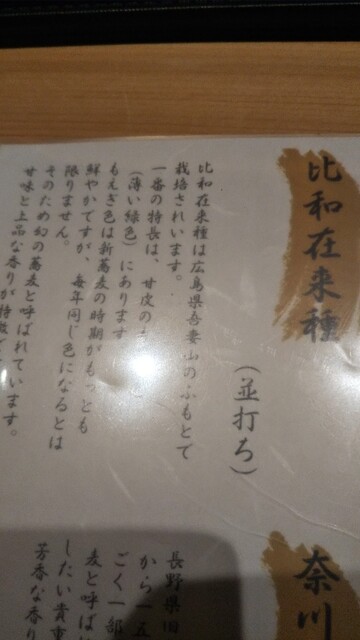 比和在来種
(並打ち)
比和在来種は広島県吾妻山のふもとで
栽培されいます。
一番の特長は、甘皮の
(薄い緑色)にあります
もえぎ色は新蕎麦の時期がもっとも
鮮やかですが、毎年同じ色になるとは
限りません。
そのため幻の蕎麦と呼ばれています。
甘味と上品な香りが特徴で
奈川
長野県旧
から一五
ごく一部
麦と呼ば
したい貴重
芳香な香り